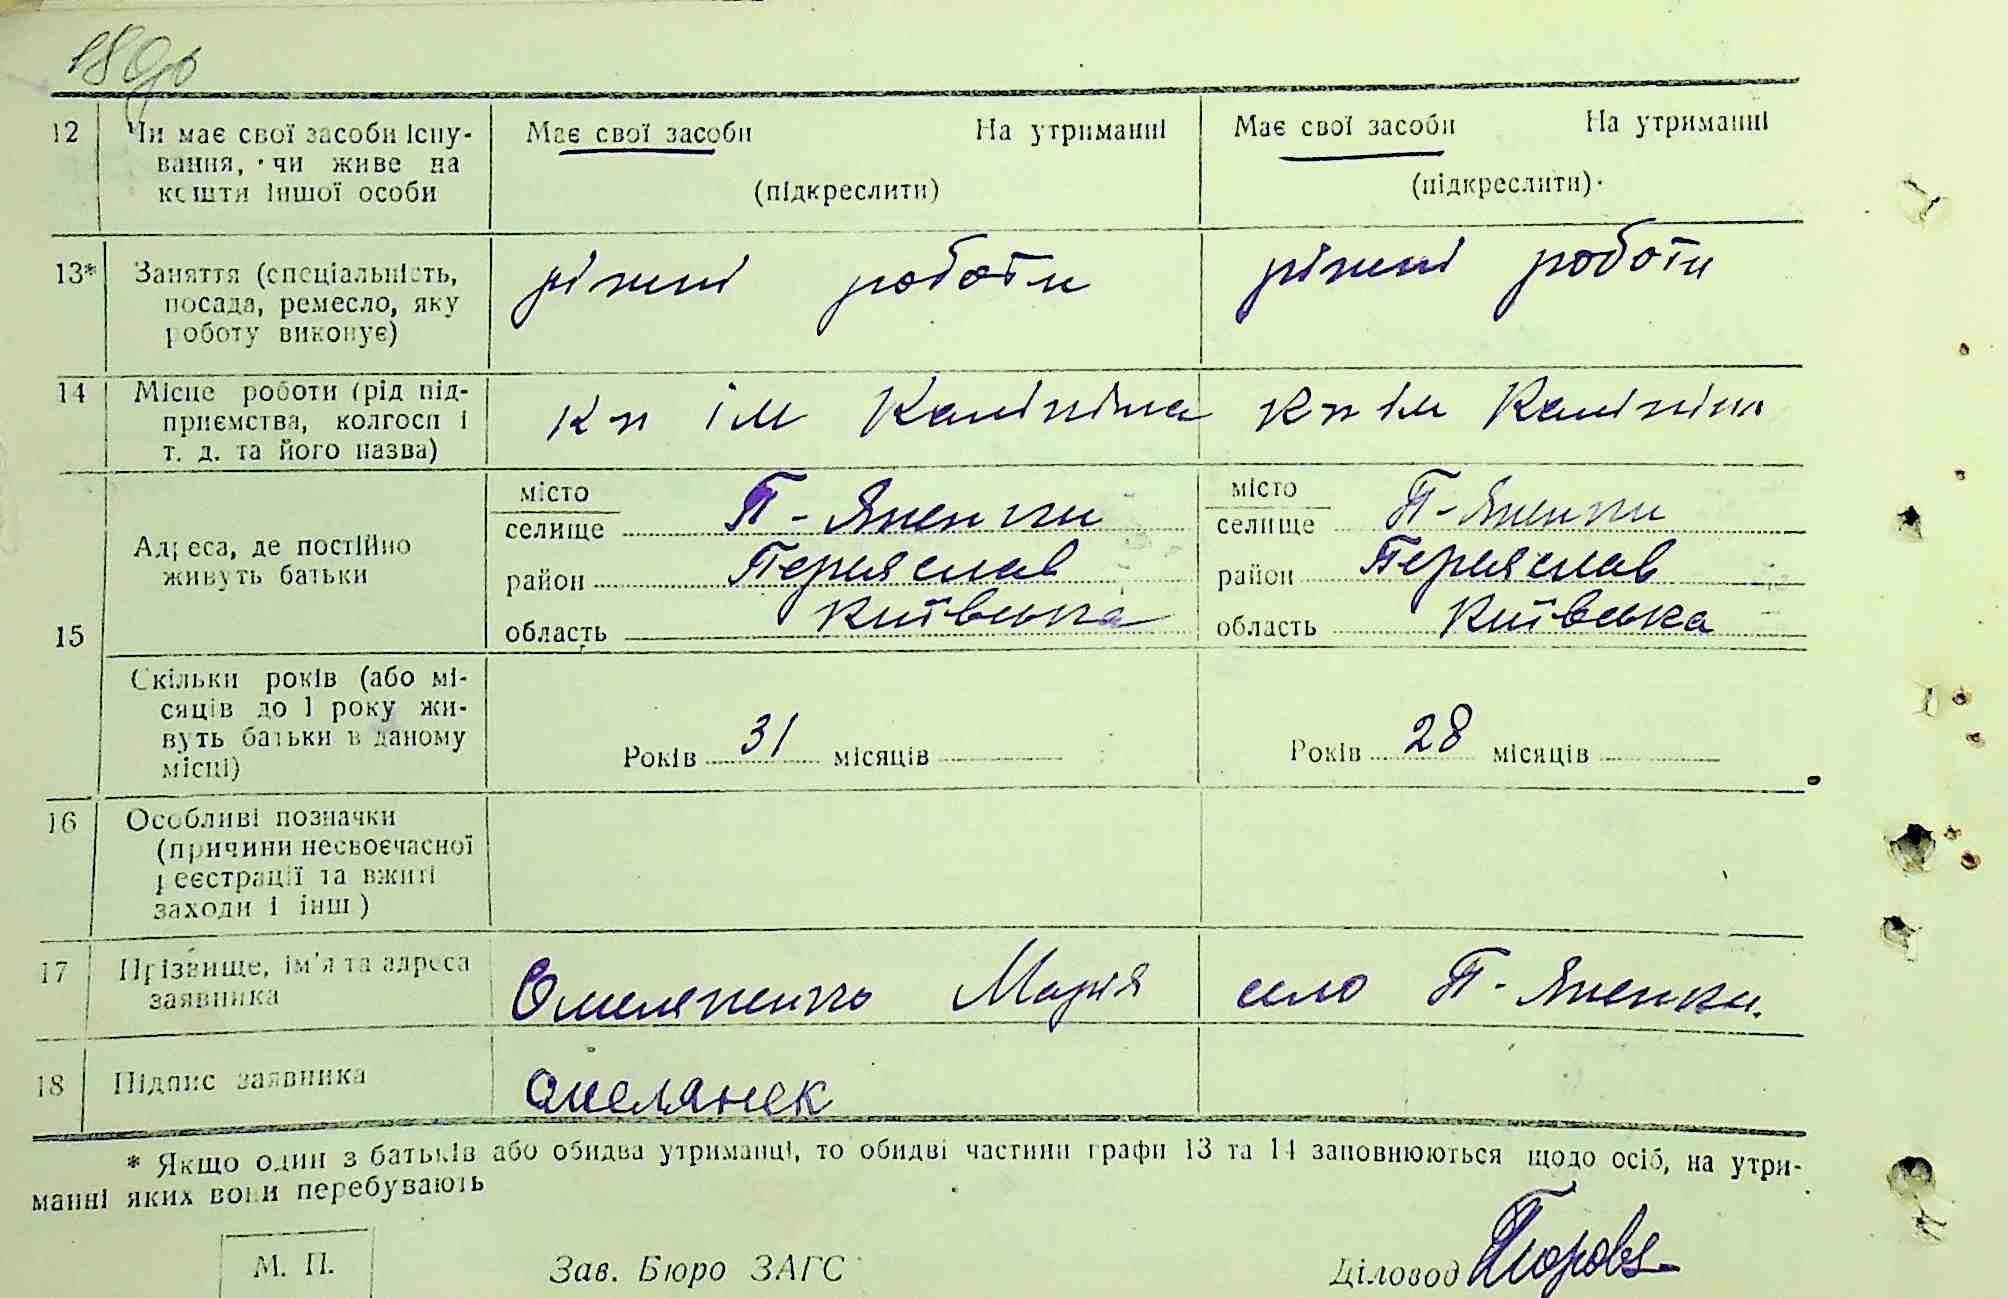 18об
12 Чи має свої засоби існу- Має свої засоби На утриманні Має свої засоби На утриманні
вання, чи живе на
кошти іншої особи (підкреслити) (підкреслити)
13* Заняття (спеціальність, ріжні роботи ріжні роботи
посада, ремесло, яку
роботу виконує)
14 Місце роботи (рід під- кп ім Калініна кп ім Калініна
приємства, колгосп і
т. д. та його назва)
15 Адреса, де постійно місто місто
живуть батьки селище П-Яненки селище П-Яненки
район Переяслав район Переяслав
область Київська область Київська
Скільки років (або мі-
сяців до 1 року жи-
вуть батьки в даному Років 31 місяців Років 28 місяців
місці)
16 Особливі позначки
(причини несвоєчасної
реєстрації та вжиті
заходи і інш)
17 Прізвище, ім'я та адреса Омеляненко Марія село П-Яненки.
заявника
18 Підпис заявника Омелянек
* Якщо один з батьків або обидва утриманці, то обидві частини графи 13 та 14 заповнюються щодо осіб, на утри-
манні яких вони перебувають
М. П. Зав. Бюро ЗАГС Діловод